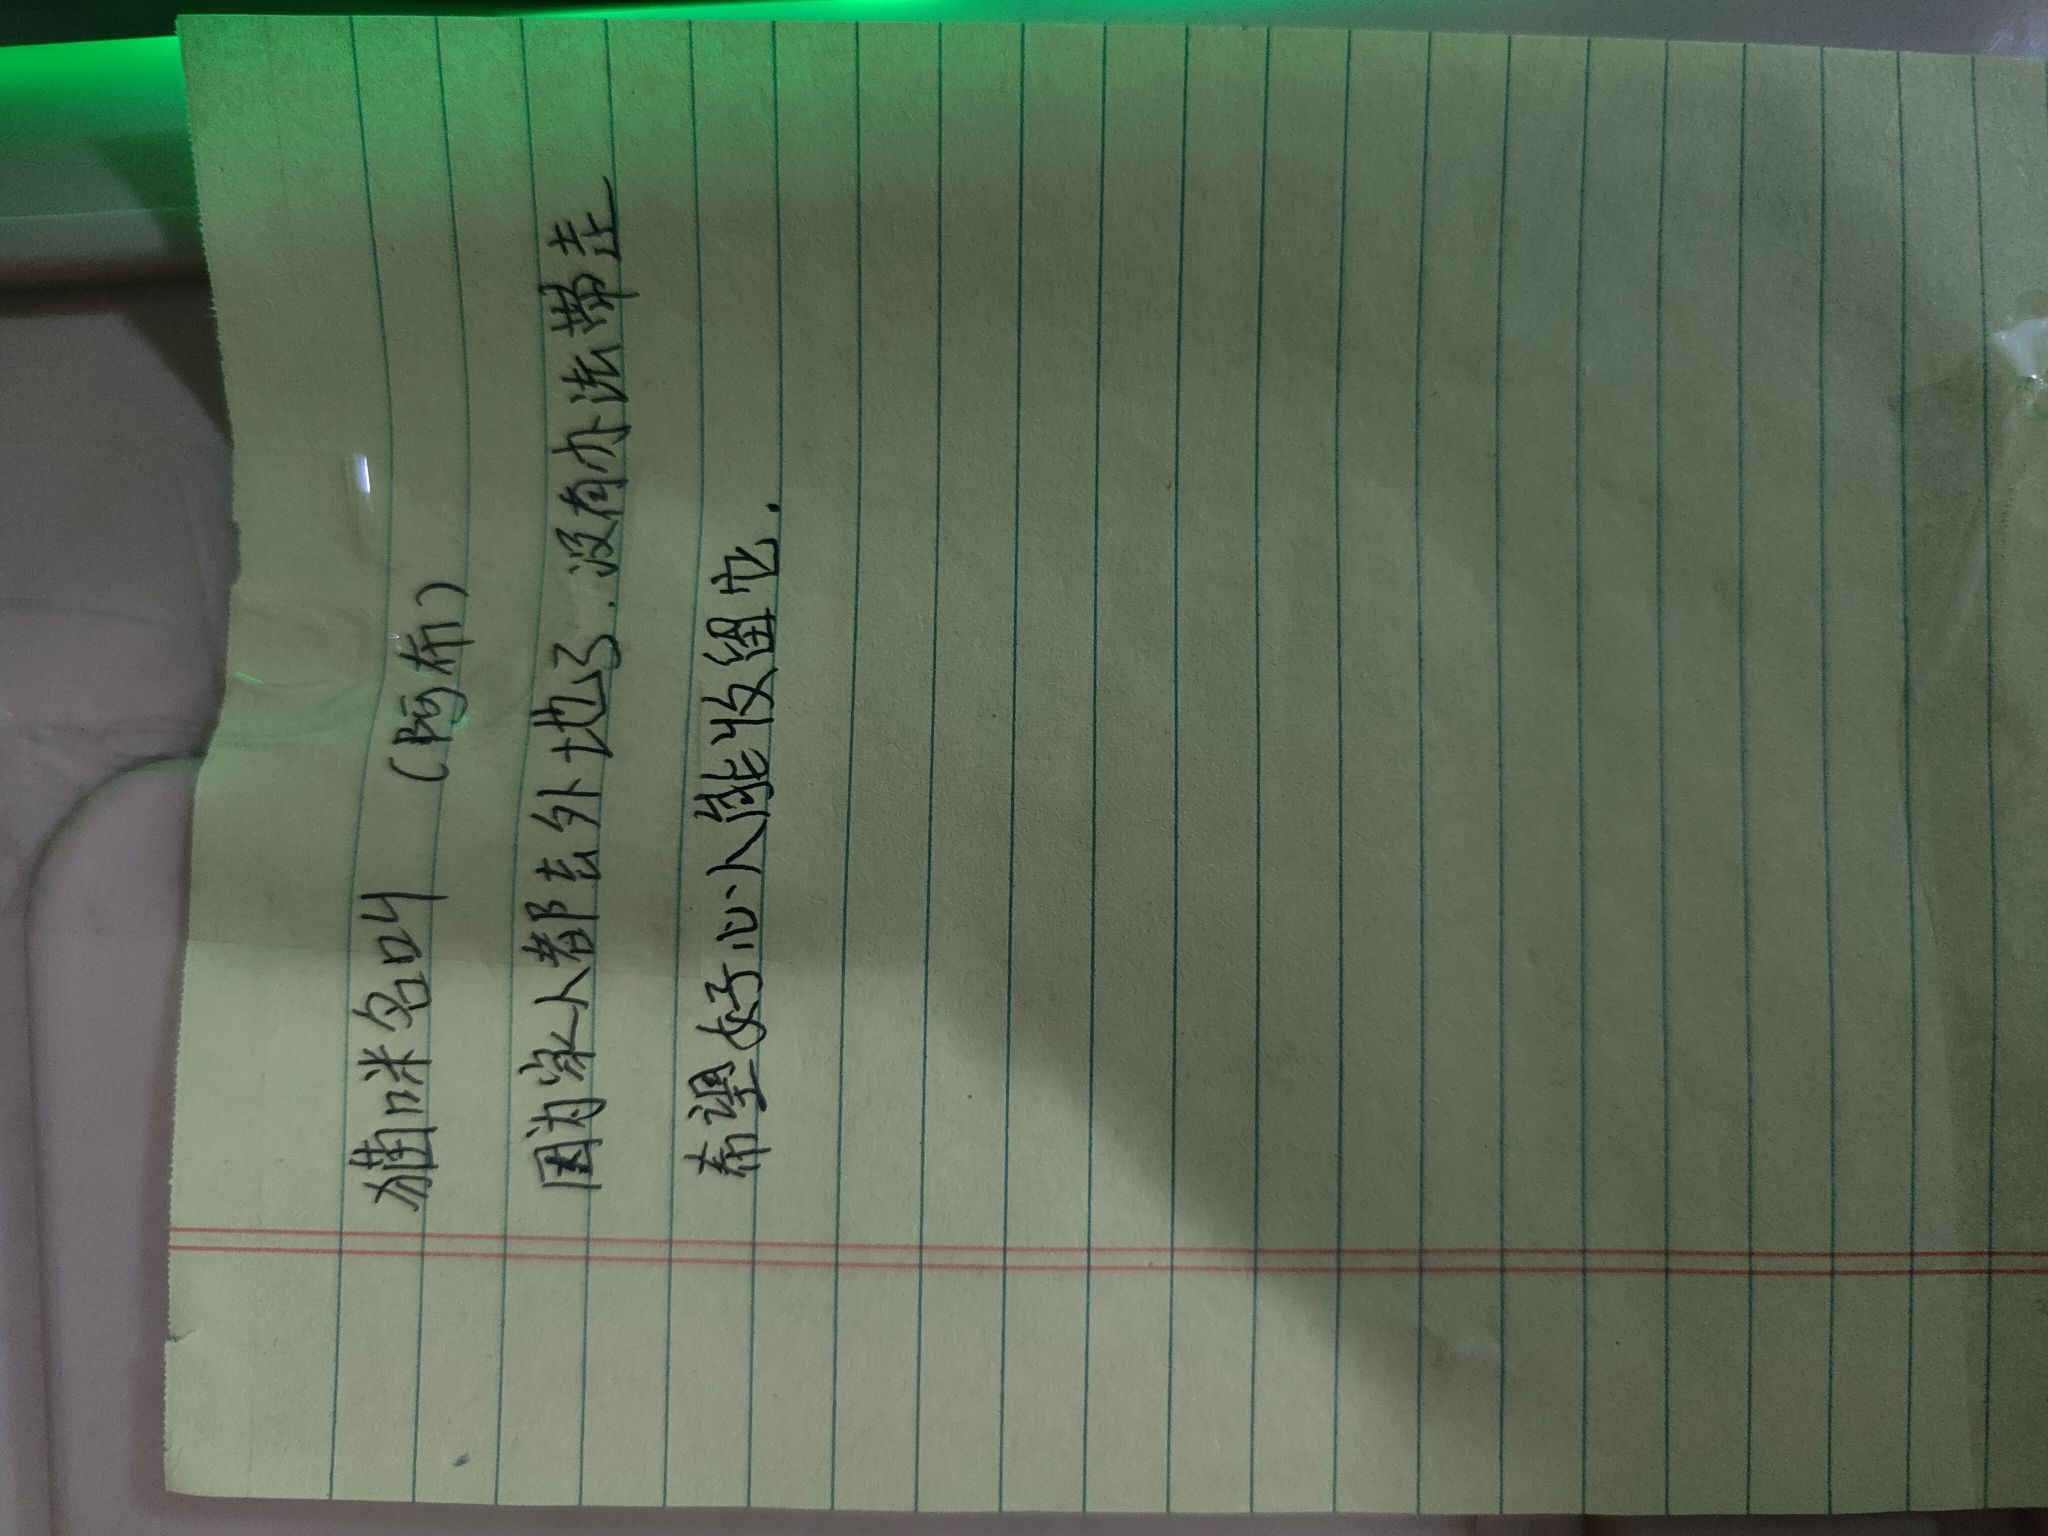 猫咪名叫 （阿布）
因为家人都去外地了.没有办法带走
希望好心人能收留它.